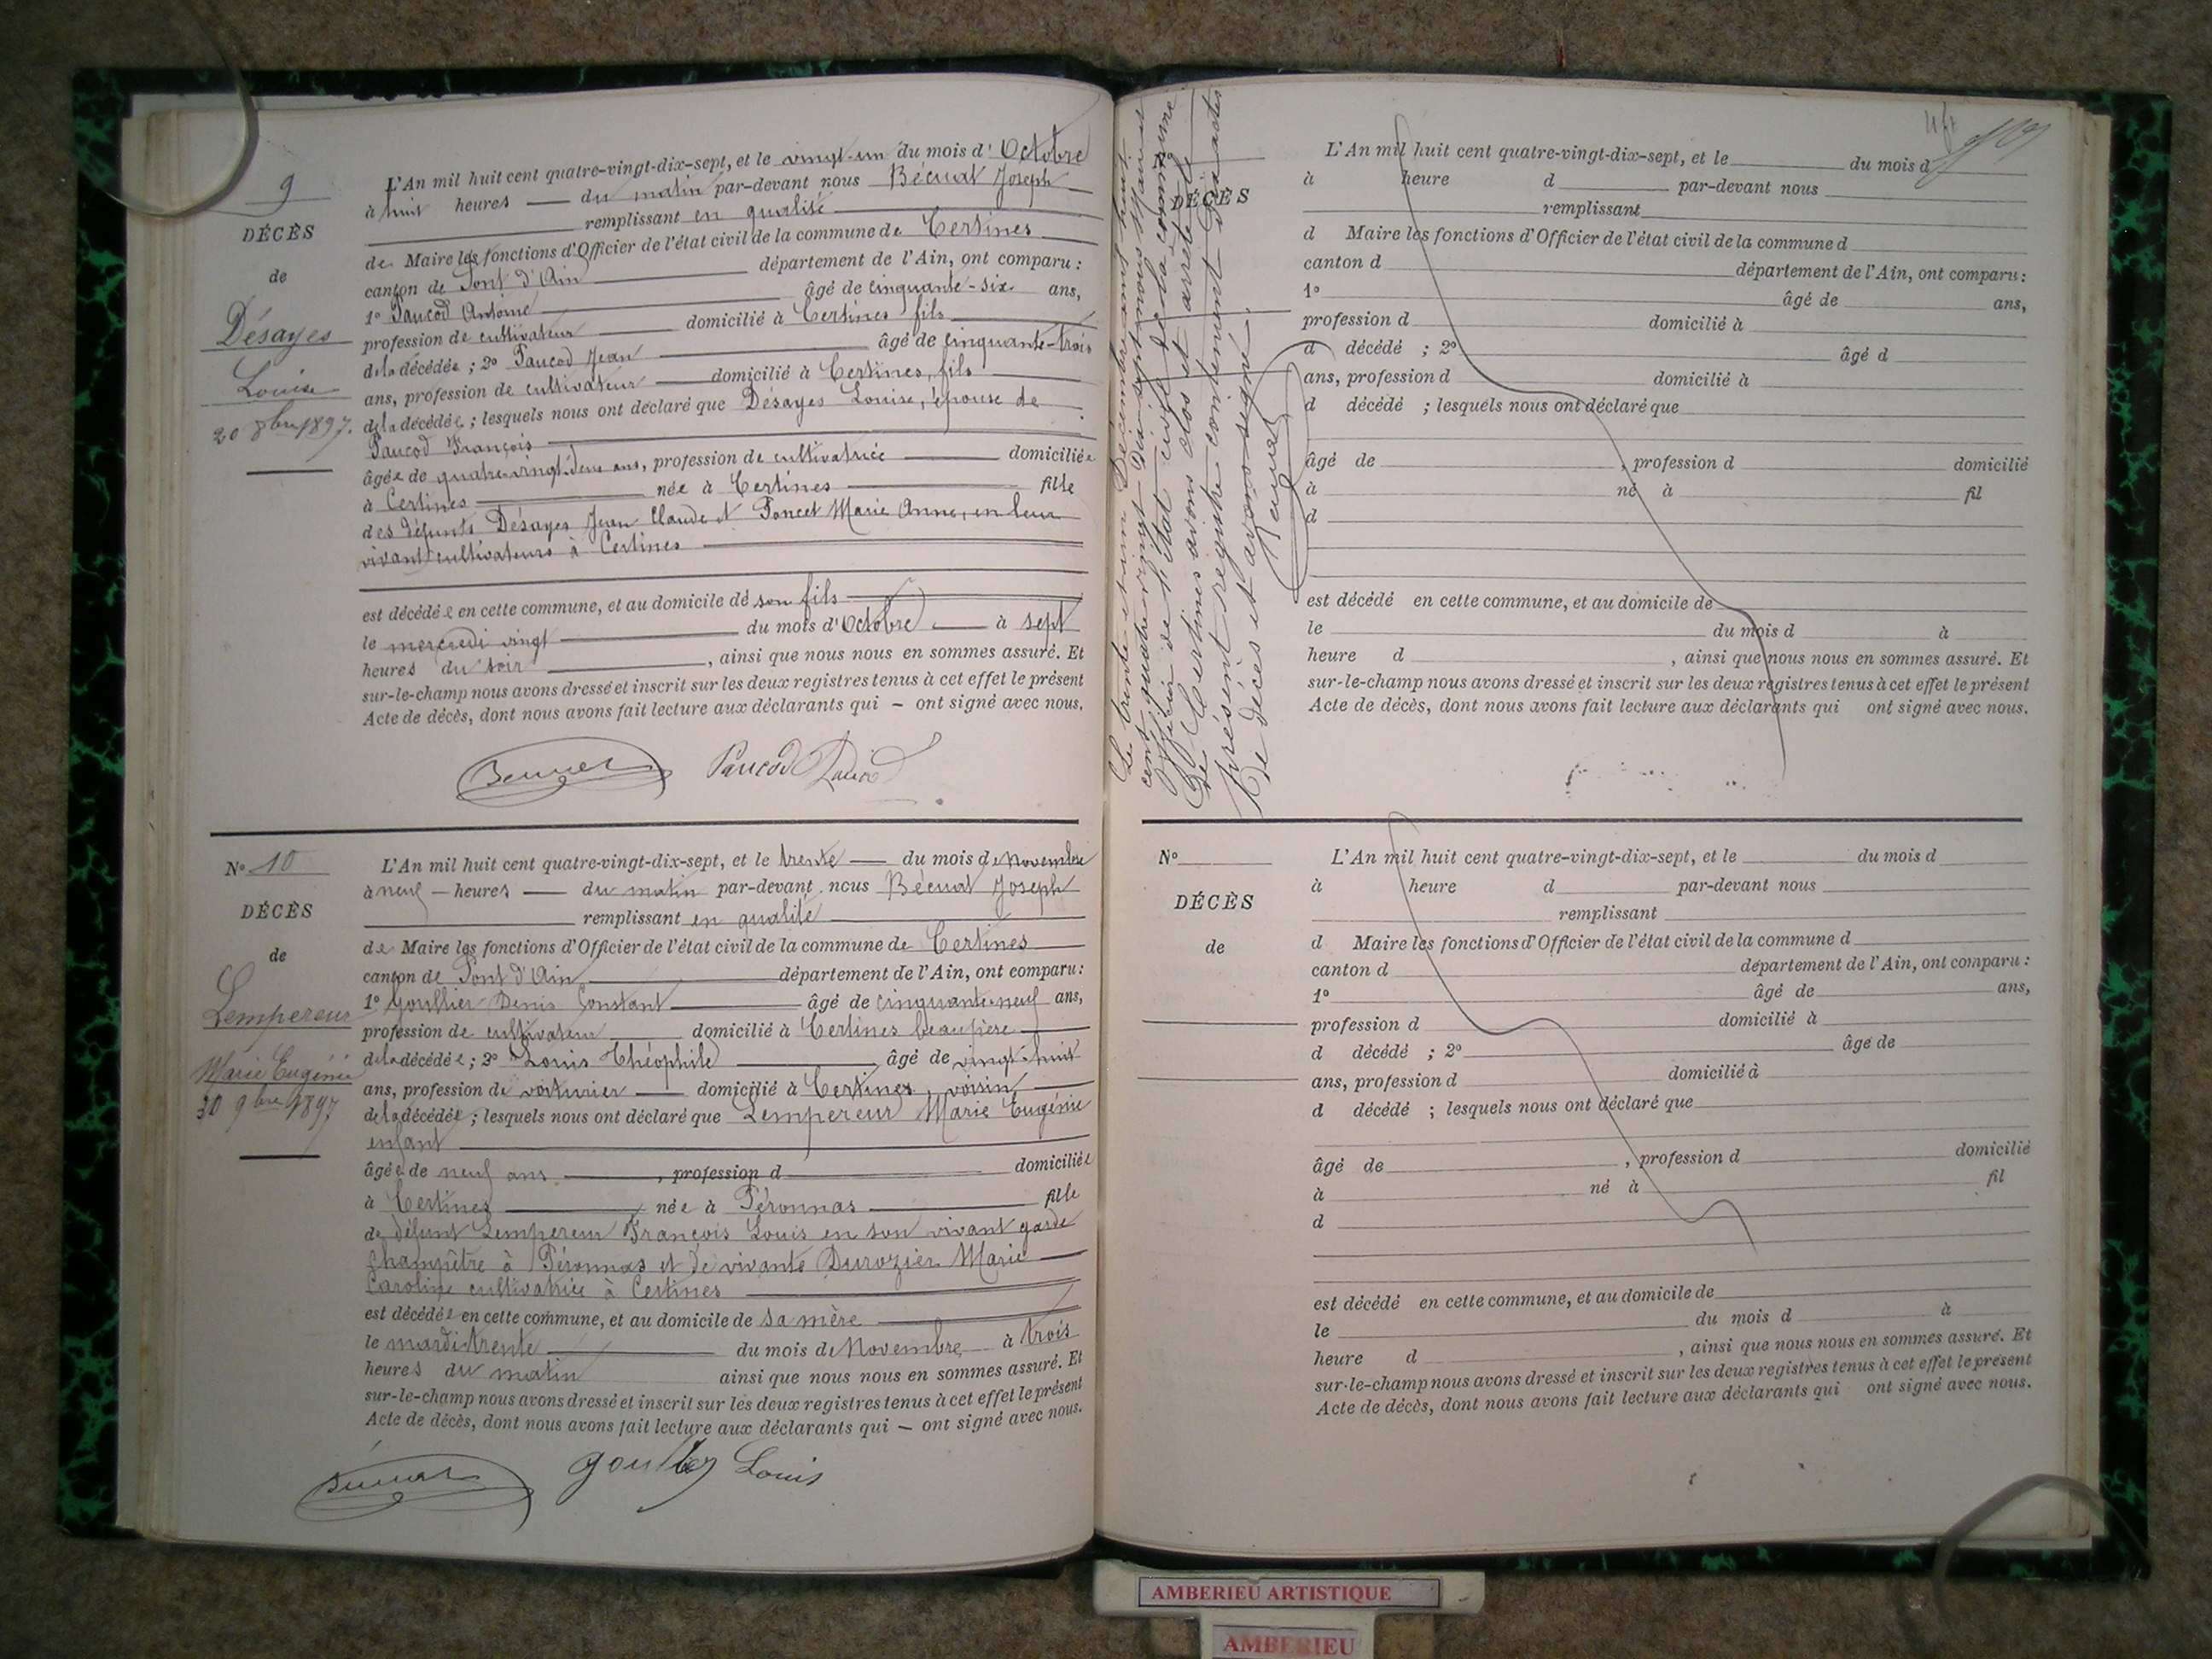 9
DÉCÈS
de
Désayes
Louise
20 8bre 1897.
L'An mil huit cent quatre-vingt-dix-sept, et le vingt-un du mois d'Octobre
à huit heures du matin par-devant nous Bécuat Joseph
remplissant en qualité
de Maire les fonctions d'Officier de l'état civil de la commune de Certines
canton de Pont d'Ain département de l'Ain, ont comparu :
1° Paucod Antoine âgé de cinquante-six ans,
profession de cultivateur domicilié à Certines fils
de la décédée ; 2° Paucod Jean âgé de cinquante-trois
ans, profession de cultivateur domicilié à Certines, fils
de la décédée ; lesquels nous ont déclaré que Désayes Louise, épouse de
Paucod François
âgée de quatre-vingt-deux ans, profession de cultivatrice domiciliée
à Certines née à Certines fille
des défunts Désayes Jean Claude et Poncet Marie Anne, en leur
vivant cultivateurs à Certines
est décédée en cette commune, et au domicile de son fils
le mercredi vingt du mois d'Octobre à sept
heures du soir, ainsi que nous nous en sommes assuré. Et
sur-le-champ nous avons dressé et inscrit sur les deux registres tenus à cet effet le présent
Acte de décès, dont nous avons fait lecture aux déclarants qui — ont signé avec nous.
Bécuat Paucod Paucod
N° 10
DÉCÈS
de
Lempereur
Marie Eugénie
30 9bre 1897
L'An mil huit cent quatre-vingt-dix-sept, et le trente du mois de Novembre
à neuf heures du matin par-devant nous Bécuat Joseph
remplissant en qualité
de Maire les fonctions d'Officier de l'état civil de la commune de Certines
canton de Pont d'Ain département de l'Ain, ont comparu :
1° Goullier Denis Constant âgé de cinquante-neuf ans,
profession de cultivateur domicilié à Certines beau-père
de la décédée ; 2° Louis Théophile âgé de vingt-huit
ans, profession de voiturier domicilié à Certines, voisin
de la décédée ; lesquels nous ont déclaré que Lempereur Marie Eugénie
enfant
âgée de neuf ans, profession d domiciliée
à Certines, née à Péronnas fille
de défunt Lempereur François Louis en son vivant garde
champêtre à Péronnas et de vivante Durozier Marie
Caroline cultivatrice à Certines
est décédée en cette commune, et au domicile de sa mère
le mardi trente du mois de Novembre à trois
heures du matin ainsi que nous nous en sommes assuré. Et
sur-le-champ nous avons dressé et inscrit sur les deux registres tenus à cet effet le présent
Acte de décès, dont nous avons fait lecture aux déclarants qui — ont signé avec nous.
Bécuat Louis
Le trente et un Décembre mil huit
cent quatre vingt Dix sept nous Maire et
Officier de l'état civil de la commune
de Certines avons clos et arrêté le
présent registre contenant Dix actes
de décès et avons signé.
Bécuat
DÉCÈS
L'An mil huit cent quatre-vingt-dix-sept, et le du mois d
à heure d par-devant nous
remplissant
d Maire les fonctions d'Officier de l'état civil de la commune d
canton d département de l'Ain, ont comparu :
1° âgé de ans,
profession d domicilié à
d décédé ; 2° âgé d
ans, profession d domicilié à
d décédé ; lesquels nous ont déclaré que
âgé de , profession d domicilié
à né à fil
d
est décédé en cette commune, et au domicile de
le du mois d à
heure d , ainsi que nous nous en sommes assuré. Et
sur-le-champ nous avons dressé et inscrit sur les deux registres tenus à cet effet le présent
Acte de décès, dont nous avons fait lecture aux déclarants qui ont signé avec nous.
N°
DÉCÈS
de
L'An mil huit cent quatre-vingt-dix-sept, et le du mois d
à heure d par-devant nous
remplissant
d Maire les fonctions d'Officier de l'état civil de la commune d
canton d département de l'Ain, ont comparu :
1° âgé de ans,
profession d domicilié à
d décédé ; 2° âgé de
ans, profession d domicilié à
d décédé ; lesquels nous ont déclaré que
âgé de , profession d domicilié
à né à fil
d
est décédé en cette commune, et au domicile de
le du mois d à
heure d , ainsi que nous nous en sommes assuré. Et
sur-le-champ nous avons dressé et inscrit sur les deux registres tenus à cet effet le présent
Acte de décès, dont nous avons fait lecture aux déclarants qui ont signé avec nous.
AMBERIEU ARTISTIQUE
AMBERIEU